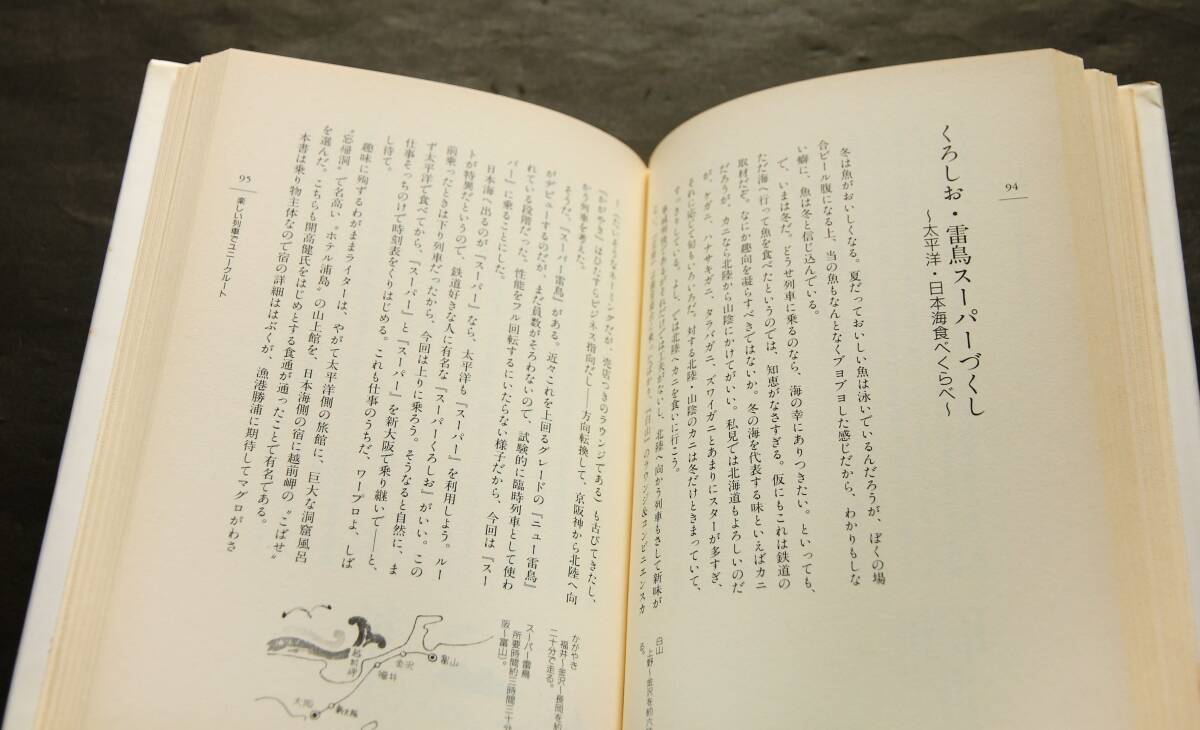 94
くろしお・雷鳥スーパーづくし
〜太平洋・日本海食べくらべ〜
冬は魚がおいしくなる。夏だっておいしい魚は泳いでいるんだろうが、ぼくの場
合ビール腹になる上、当の魚もなんとなくブヨブヨした感じだから、わかりもしな
い癖に、魚は冬と信じ込んでいる。
で、いまは冬だ。どうせ列車に乗るのなら、海の幸にありつきたい。といっても、
ただ海へ行って魚を食べたというのでは、知恵がなさすぎる。仮にもこれは鉄道の
取材だぞ。なにか趣向を凝らすべきではないか。冬の海を代表する味といえばカニ
だろうが、カニなら北陸から山陰にかけてがいい。私見では北海道もよろしいのだ
が、ケガニ、ハナサキガニ、タラバガニ、ズワイガニとあまりにスターが多すぎ、
それに応じて旬もいろいろだ。対する北陸・山陰のカニは冬だけときまっていて、
すっきりしている。よし、では北陸へカニを食いに行こう。
北陸へ向かう列車もさして新味が
『白山』のラウンジ&コンビニエンスカ
白山
上野〜金沢を約六
る。
『かがやき』はひたすらビジネス指向だし——方向転換して、京阪神から北陸へ向
かう列車を考えた。
そうだ、『スーパー雷鳥』がある。近々これを上回るグレードの『ニュー雷鳥』
がデビューするのだが、まだ員数がそろわないので、試験的に臨時列車として使わ
れている段階だった。性能をフル回転するにいたらない様子だから、今回は『スー
パー』に乗ることにした。
日本海へ出るのが『スーパー』なら、太平洋も『スーパー』を利用しよう。ルー
トが特異だというので、鉄道好きな人に有名な『スーパーくろしお』がいい。この
前乗ったときは下り列車だったから、今回は上りに乗ろう。そうなると自然に、ま
ず太平洋で食べてから、『スーパー』と『スーパー』を新大阪で乗り継いで——と、
仕事そっちのけで時刻表をくりはじめる。これも仕事のうちだ、ワープロよ、しば
し待て。
趣味に殉ずるわがままライターは、やがて太平洋側の旅館に、巨大な洞窟風呂
〝忘帰洞〟で名高い〝ホテル浦島〟の山上館を、日本海側の宿に越前岬の〝こばせ〟
を選んだ。こちらも開高健氏をはじめとする食通が通ったことで有名である。
本書は乗り物主体なので宿の詳細ははぶくが、漁港勝浦に期待してマグロがわさ
かがやき
福井〜金沢〜長岡を約
二十分で走る。
スーパー雷鳥
所要時間約三時間三十分
阪〜富山）。
富山
金沢
福井
越前岬
新大阪
大阪
95
楽しい列車でユニークルート